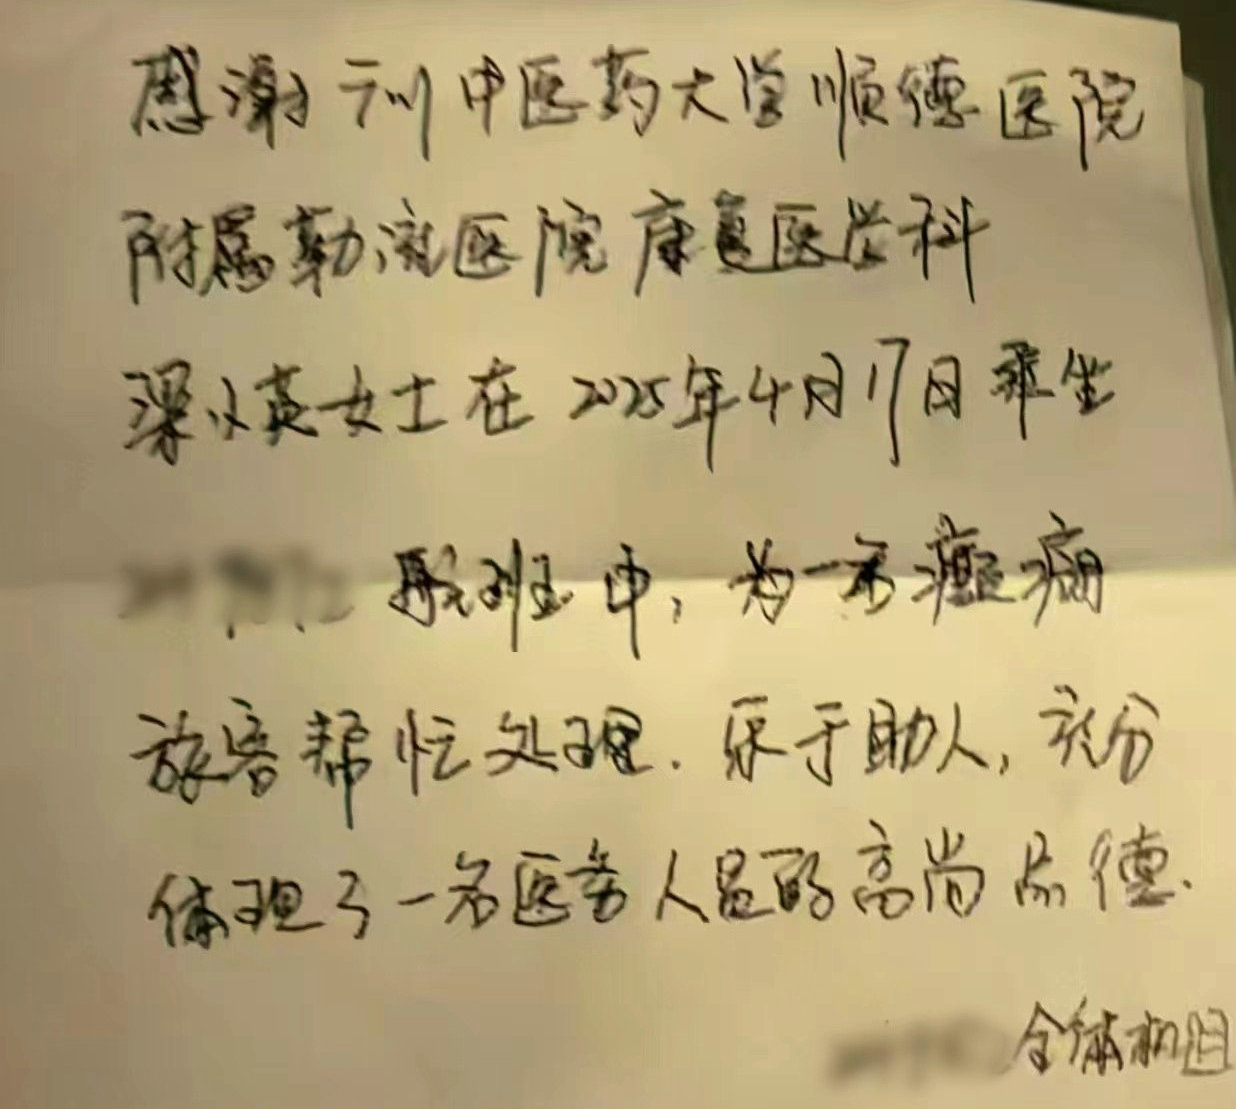 感谢广州中医药大学顺德医院
附属勒流医院康复医学科
梁以英女士在2025年4月17日乘坐
航班中，为一名癫痫
旅客帮忙处理.乐于助人，充分
体现了一名医务人员的高尚品德.
全体机组